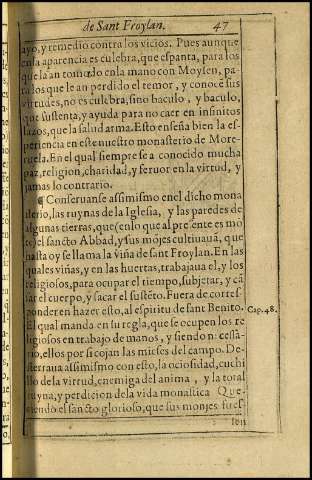 de Sant Froylan. 47
ayo, y remedio contra los vicios. Pues aunque
en la aparencia es culebra, que espanta, para los
que la an tomado en la mano con Moysen, pa-
ra los que le an perdido el temor, y conocẽ sus
virtudes, no es culebra, sino baculo, y baculo,
que sustenta, y ayuda para no caer en infinitos
lazos, que la salud arma. Esto enseña bien la es-
periencia en este nuestro monasterio de More-
ruela. En el qual siempre se a conocido mucha
paz, religion, charidad, y feruor en la virtud, y
jamas lo contrario.
¶ Conseruanse assimismo en el dicho mona
sterio, las ruynas de la Iglesia, y las paredes de
algunas tierras, que (en lo que al presente es mõ
te) el sancto Abbad, y sus mõjes cultiuauã, que
hasta oy se llama la Viña de sant Froylan. En las
quales viñas, y en las huertas, trabajaua el, y los
religiosos, para ocupar el tiempo, subjetar, y cã
sar el cuerpo, y sacar el sustẽto. Fuera de corres-
ponder en hazer esto, al espiritu de sant Benito.
Cap. 48.
El qual manda en su regla, que se ocupen los re
ligiosos en trabajo de manos, y siendo necessa-
rio, ellos por si cojan las mieses del campo. De-
sterraua assimismo con esto, la ociosidad, cuchi
llo de la virtud, enemiga del anima, y la total
ruyna, y perdicion de la vida monastica. Que-
riendo el sancto glorioso, que sus monjes fues-
sen